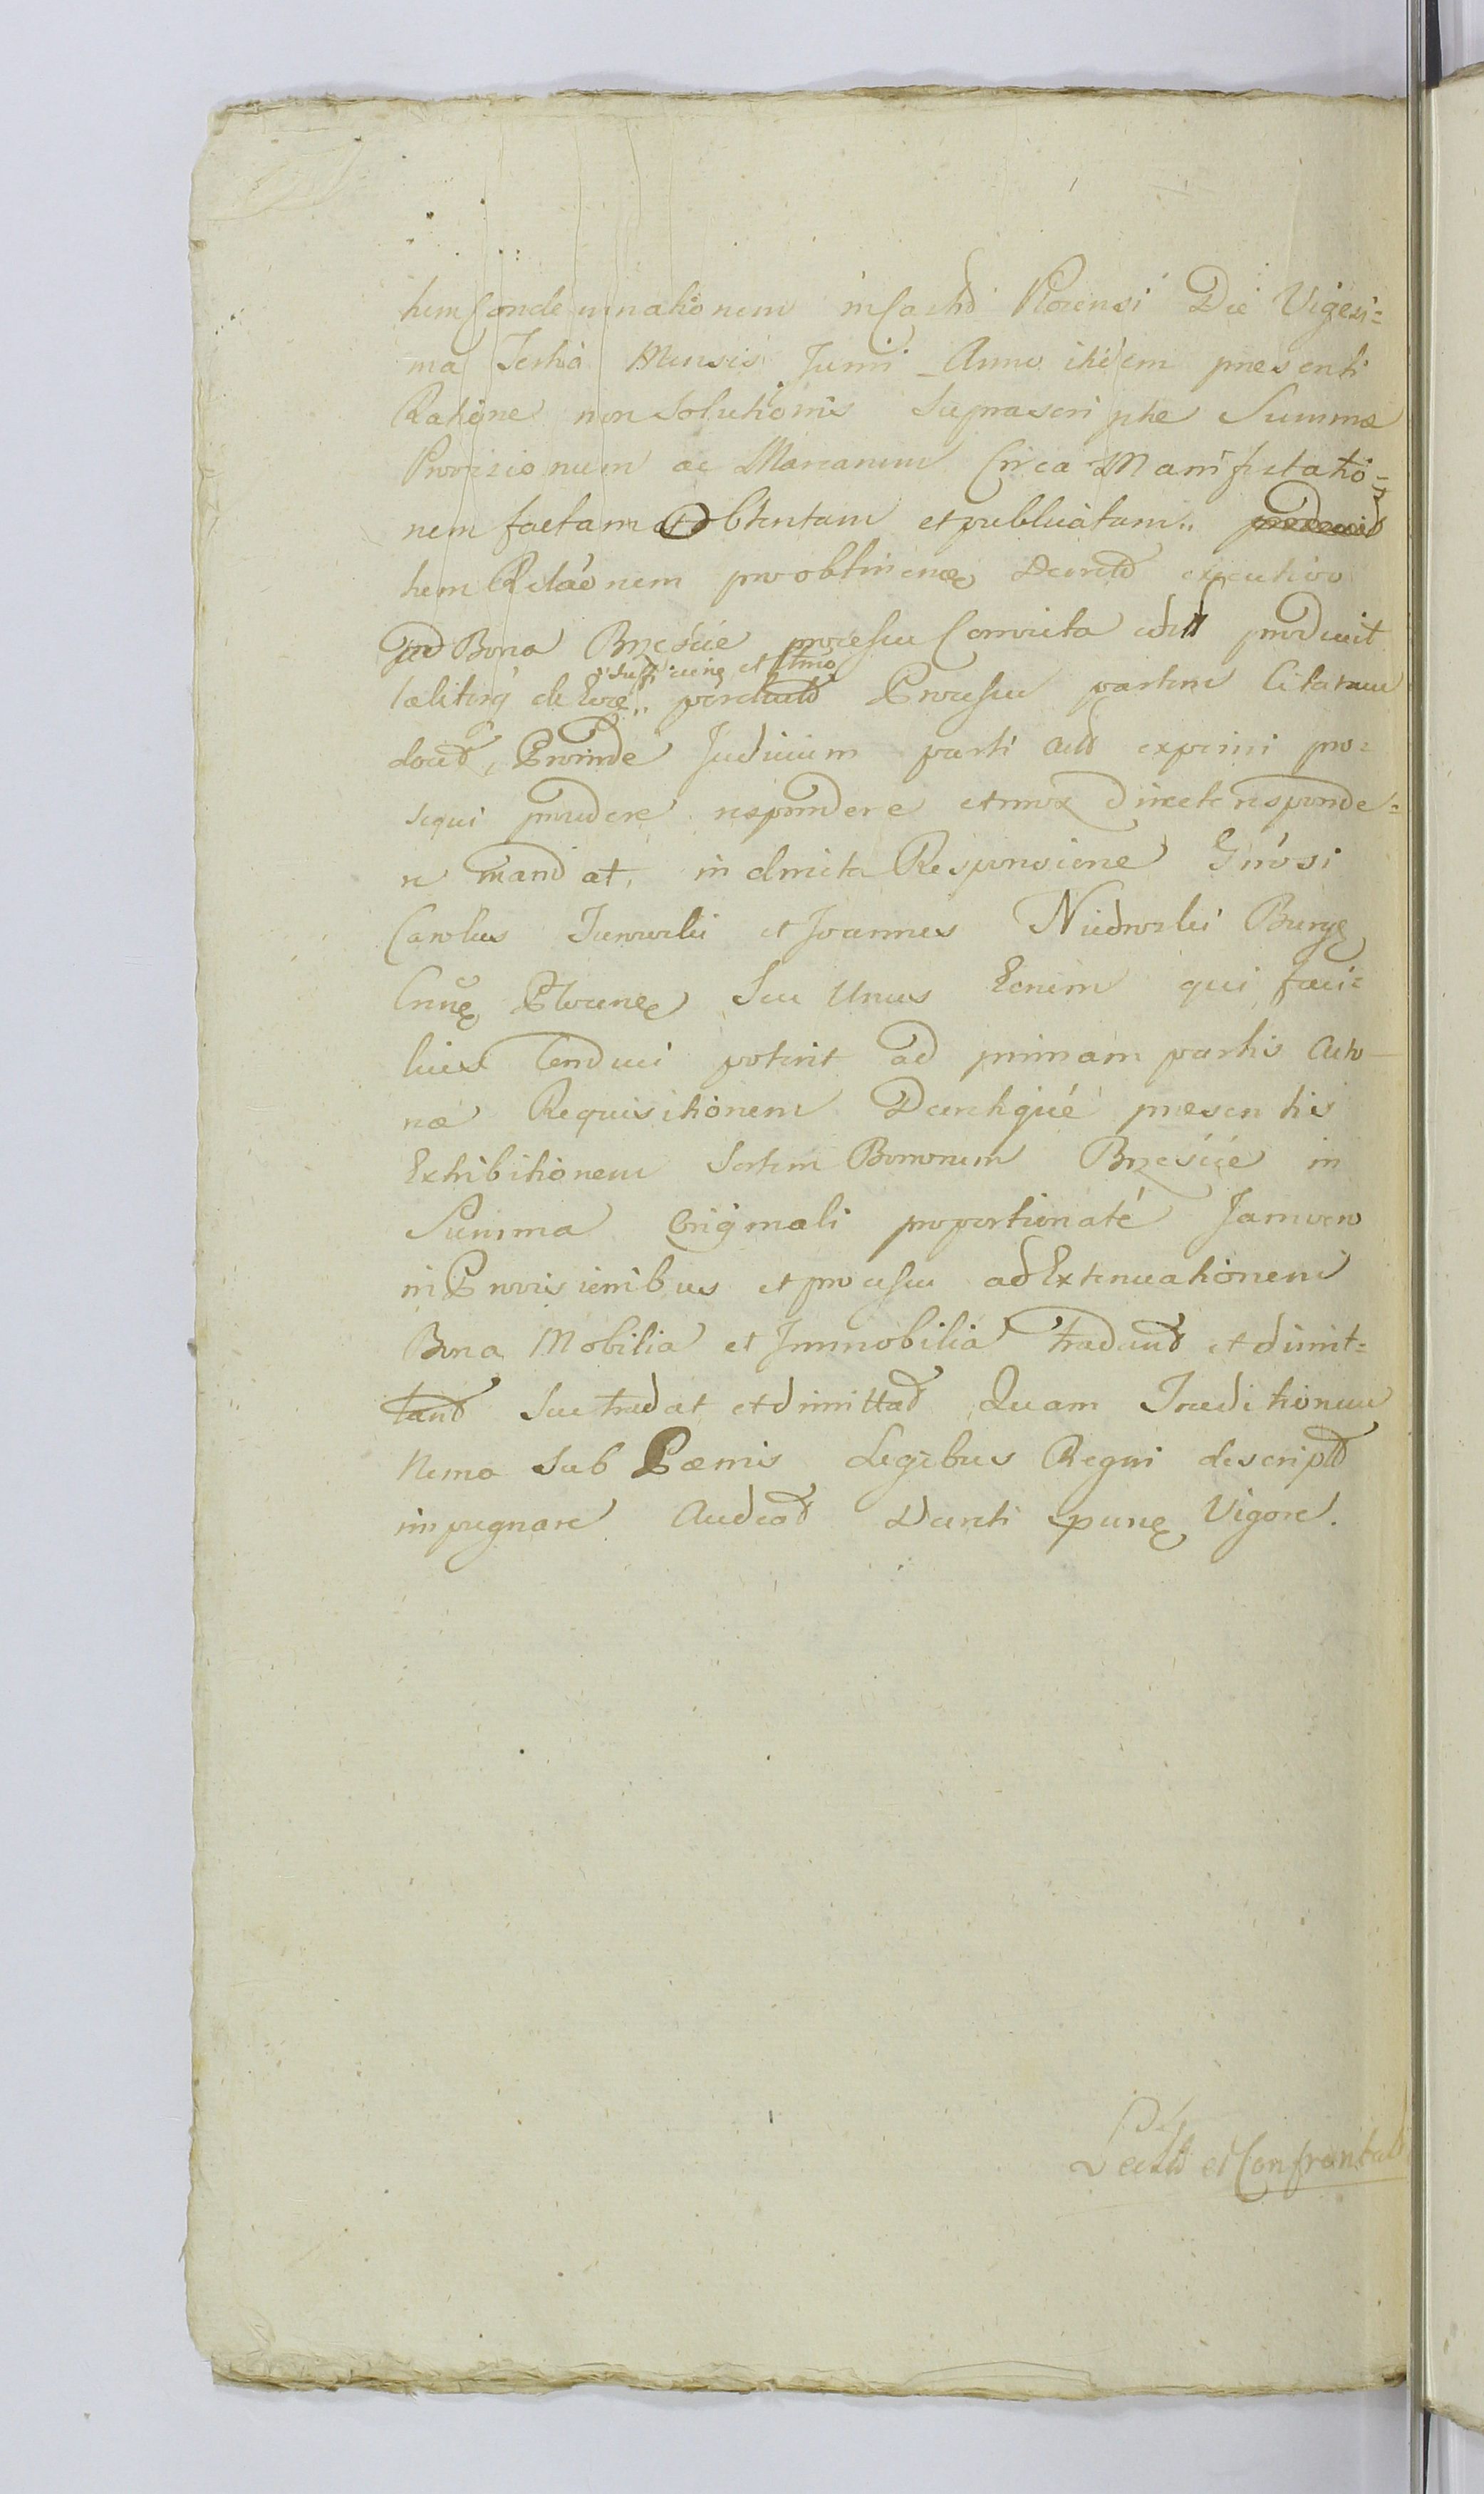 tem Condemnationem in Castro Plocensi Die Vigesi=
ma Tertia Mensis Junii Anno itidem presenti
Ratione non Solutionis Suprascripte Summæ
Provisionum ac Marcarum Circa Manifestatio=
nem factam et obtentam et publicatam.. produxit
tem Relaōnem pro obtinenđ Decreto executivo
ad Bona Brzeście processu Convicta produxit
taliterq de Lege.. sufficienę et ltīmo Processu partem Citatam
docuit, Proinde Judicium parti expeniri pro=
sequi procedere respondere et mox directe responde=
re mandat, in directa Responsione Gnrosi
Carolus et Joannes Niedroski Burgę
Plocenę Seu Unus Eorum qui faci=
lius Conduci poterit ad primam partis Acto
reæ Requisitionem Decretique presentis
Exhibitionem Sortem Bonorum Brzeście in
Summa Originali proportionaté Jam vero
in Provisionibus et processu ad Extenuationem
Bona Mobilia et Immobilia tradant et dimit=
tant Seu tradat et dimittat Quam Traditionem
Nemo Sub Pœnis Legibus Regni descriptis
impugnare Audeat Decreti pntis Vigore.
Lectū et Confrontatū